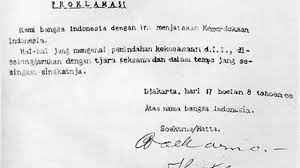 PROKLAMASI
Kami bangsa Indonesia dengan ini menjatakan Kemerdekaan
Indonesia.
Hal-hal jang mengenai pemindahan kekoeasaan d.l.l., di-
selenggarakan dengan tjara seksama dan dalam tempo jang se-
singkat-singkatnja.
Djakarta, hari 17 boelan 8 tahoen 05
Atas nama bangsa Indonesia.
Soekarno/Hatta.
Soekarno.-